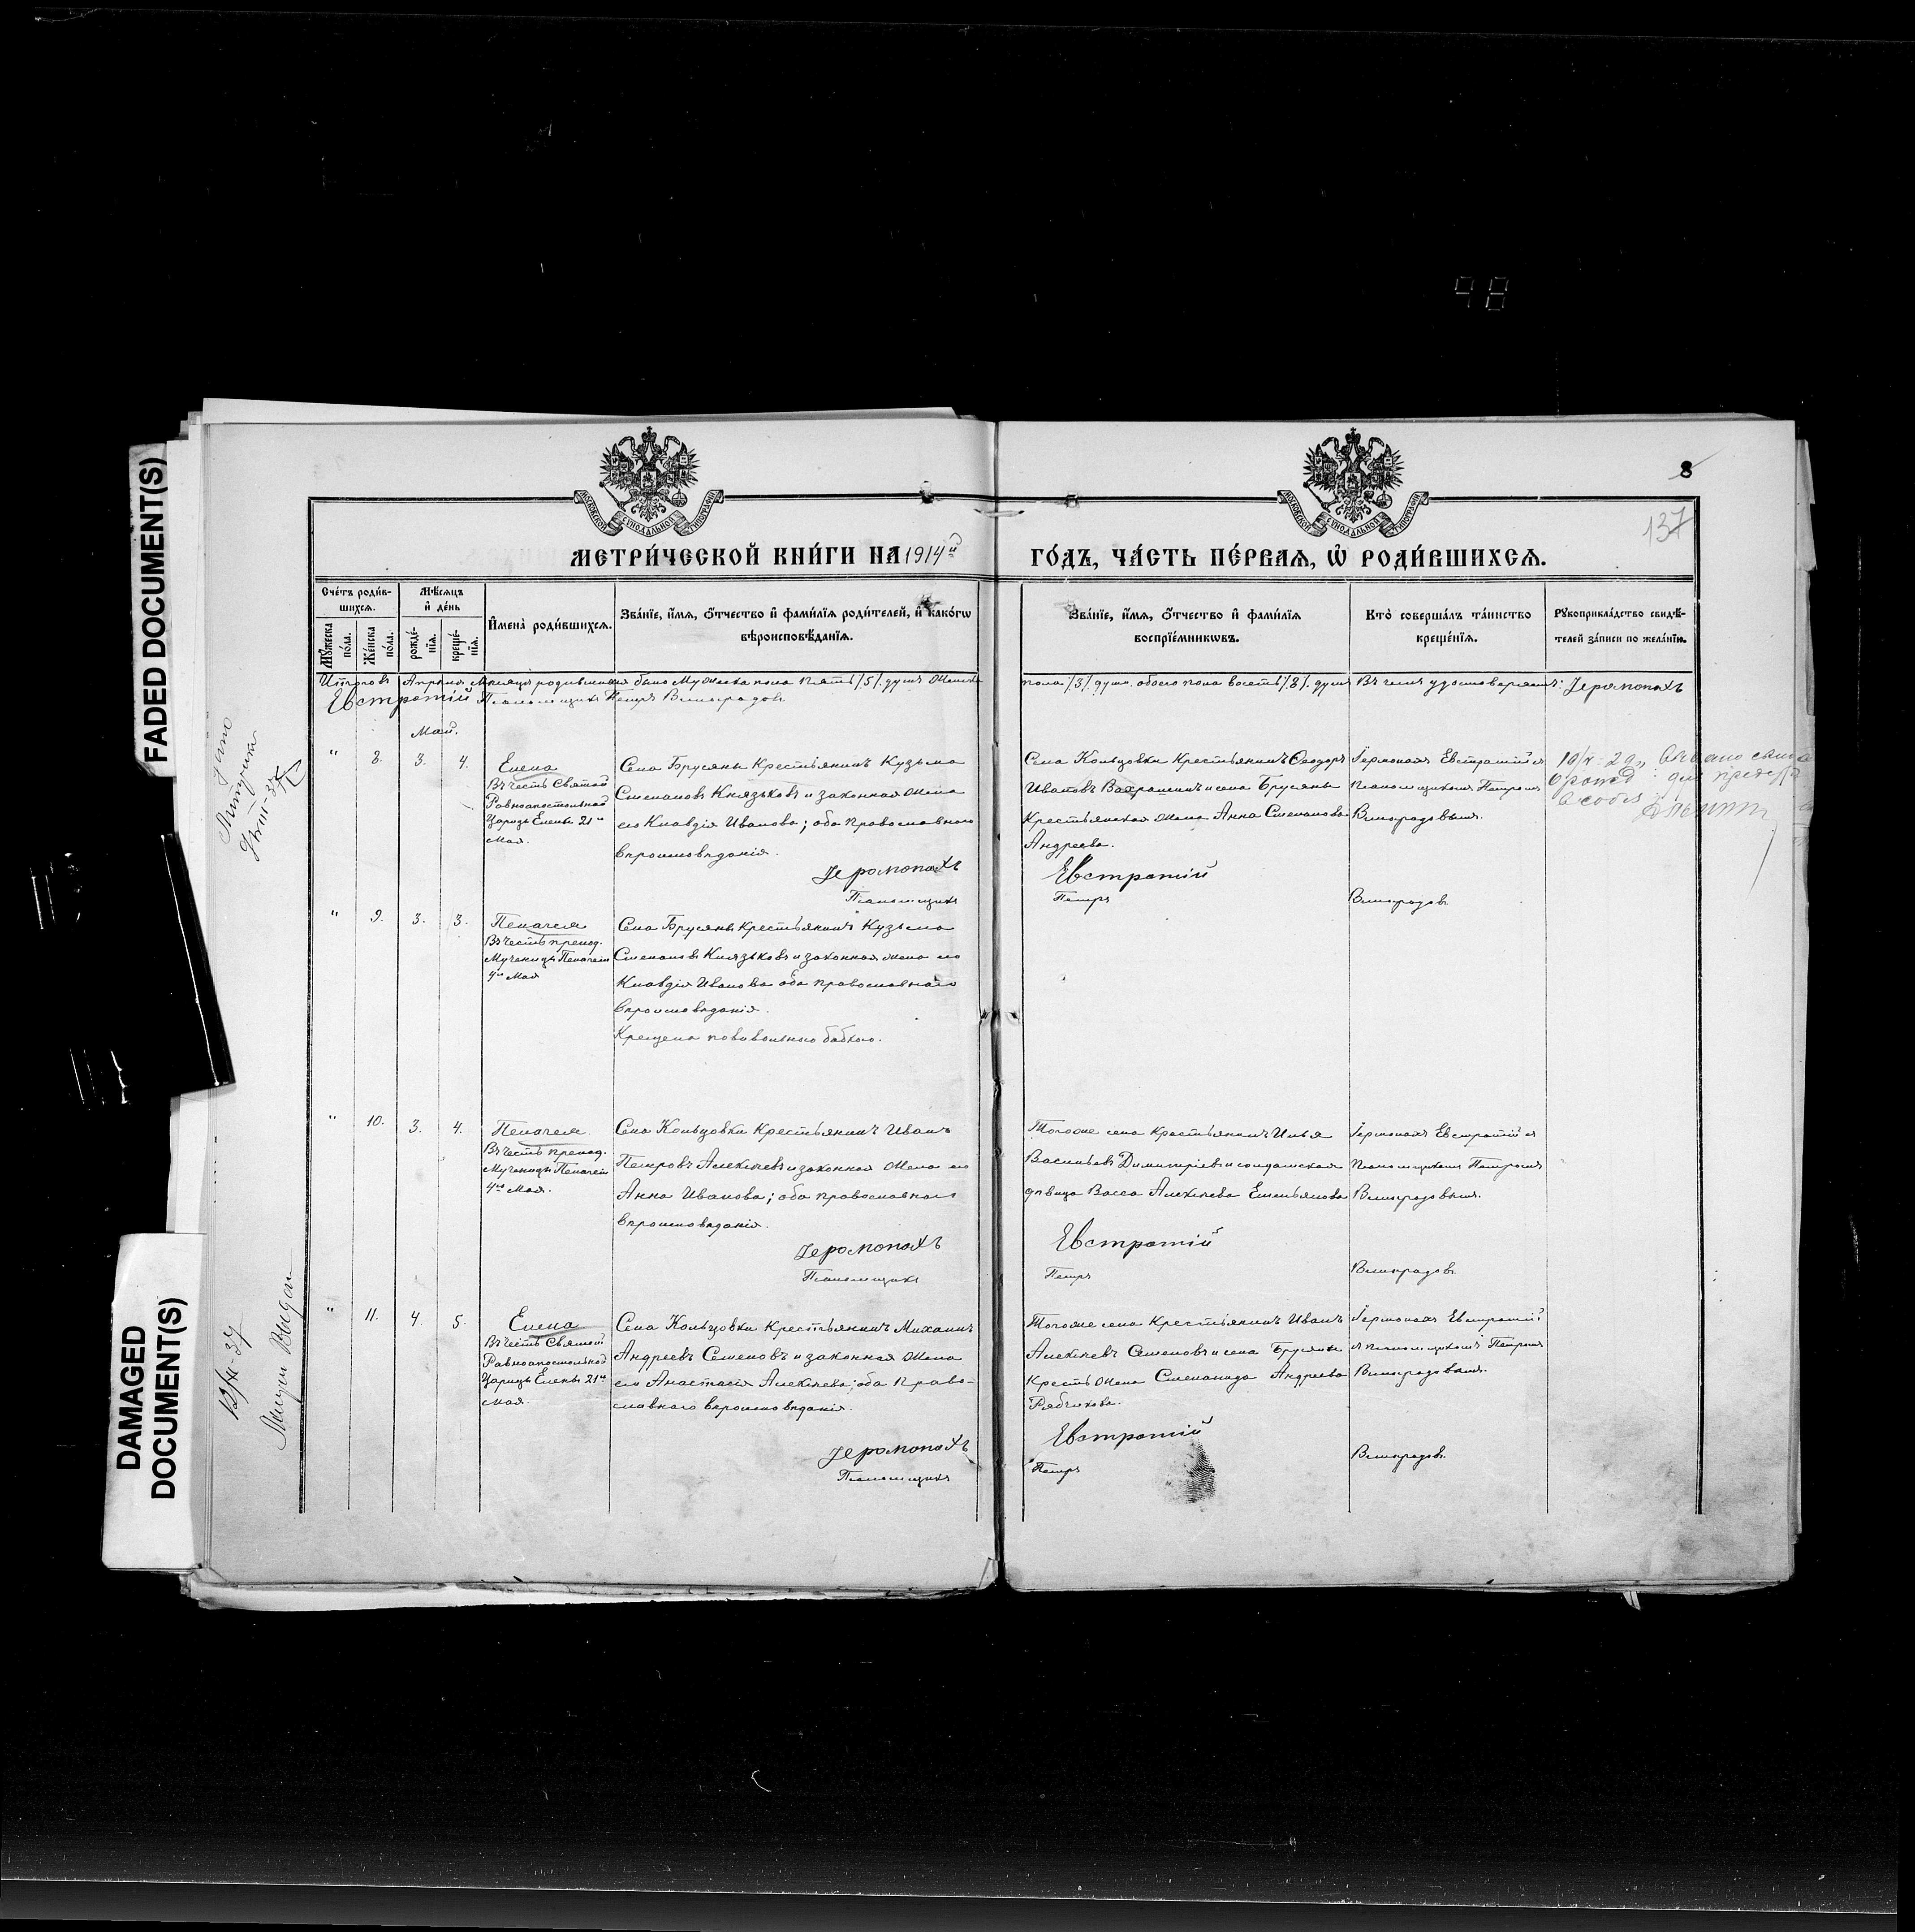 98
FADED DOCUMENT(S)
DAMAGED
DOCUMENT(S)
8
137
МОСКОВСКОЙ СѴНОДАЛЬНОЙ ТИПОГРАФІИ
МОСКОВСКОЙ СѴНОДАЛЬНОЙ ТИПОГРАФІИ
МЕТРИ́ЧЕСКОЙ КНИ́ГИ НА 1914й ГО́ДЪ, ЧА́СТЬ ПЕ́РВАѦ, Ѡ҆ РОДИ́ВШИХСѦ.
Сче́тъ роди́в-
шихсѧ.
Мꙋ́жеска
по́ла.
Же́нска
по́ла.
Мѣ́сѧцъ
и҆ де́нь
рожде́-
нїѧ.
креще́-
нїѧ.
И҆мена̀ роди́вшихсѧ.
Зва́нїе, и҆́мѧ, ѻ҆́тчество и҆ фами́лїѧ роди́телей, и҆ како́гѡ
вѣроисповѣ́данїѧ.
Зва́нїе, и҆́мѧ, ѻ҆́тчество и҆ фами́лїѧ
воспрїе́мникѡвъ.
Кто̀ соверша́лъ та́инство
креще́нїѧ.
Рꙋкоприкла́дство свидѣ́-
телей за́писи по жела́нїю.
Итого въ Апрѣлѣ мѣсяцѣ родившихся было Мужеска пола пять /5/ душъ Женска пола /3/ души, обоего пола восемь /8/ душъ Въ чемъ удостовѣряютъ: Іеромонахъ
Евстратій Псаломщикъ Петръ Виноградовъ
Май.
" 8. 3. 4.
Елена
Въ честь Святой
Равноапостольной
Царицы Елены 21го
Мая.
Села Брусяны Крестьянинъ Кузьма
Степановъ Князьковъ и законная жена
его Клавдія Иванова; оба православнаго
вѣроисповѣданія.
Села Кольцовки Крестьянинъ Ѳеодоръ
Ивановъ Вахрашинъ и села Брусяны
Крестьянская жена Анна Степанова
Андреева.
Іеромонахъ Евстратій съ
Псаломщикомъ Петромъ
Виноградовымъ.
Іеромонахъ Евстратій
Псаломщикъ Петръ Виноградовъ
" 9. 3. 3.
Пелагея
Въ честь препод.
Мученицы Пелагеи
4го Мая
Села Брусяны Крестьянинъ Кузьма
Степановъ Князьковъ и законная жена его
Клавдія Иванова оба православнаго
вѣроисповѣданія.
Крещена повивальною бабкою.
" 10. 3. 4.
Пелагея
Въ честь препод.
Мученицы Пелагеи
4го Мая.
Села Кольцовки Крестьянинъ Иванъ
Петровъ Алексѣевъ и законная жена его
Анна Иванова; оба православнаго
вѣроисповѣданія.
Тогоже села Крестьянинъ Илья
Васильевъ Димитріевъ и солдатская
дѣвица Васса Алексѣева Емельянова
Іеромонахъ Евстратій съ
Псаломщикомъ Петромъ
Виноградовымъ.
Іеромонахъ Евстратій
Псаломщикъ Петръ Виноградовъ
" 11. 4. 5.
Елена
Въ честь Святой
Равноапостольной
Царицы Елены 21го
Мая.
Села Кольцовки Крестьянинъ Михаилъ
Андреевъ Семеновъ и законная жена
его Анастасія Алексѣева; оба право-
славнаго вѣроисповѣданія.
Тогоже села Крестьянинъ Иванъ
Алексѣевъ Семеновъ и села Брусяны
Крест. жена Степанида Андреева
Рябчикова.
Іеромонахъ Евстратій
съ псаломщикомъ Петромъ
Виноградовымъ.
Іеромонахъ Евстратій
Псаломщикъ Петръ Виноградовъ